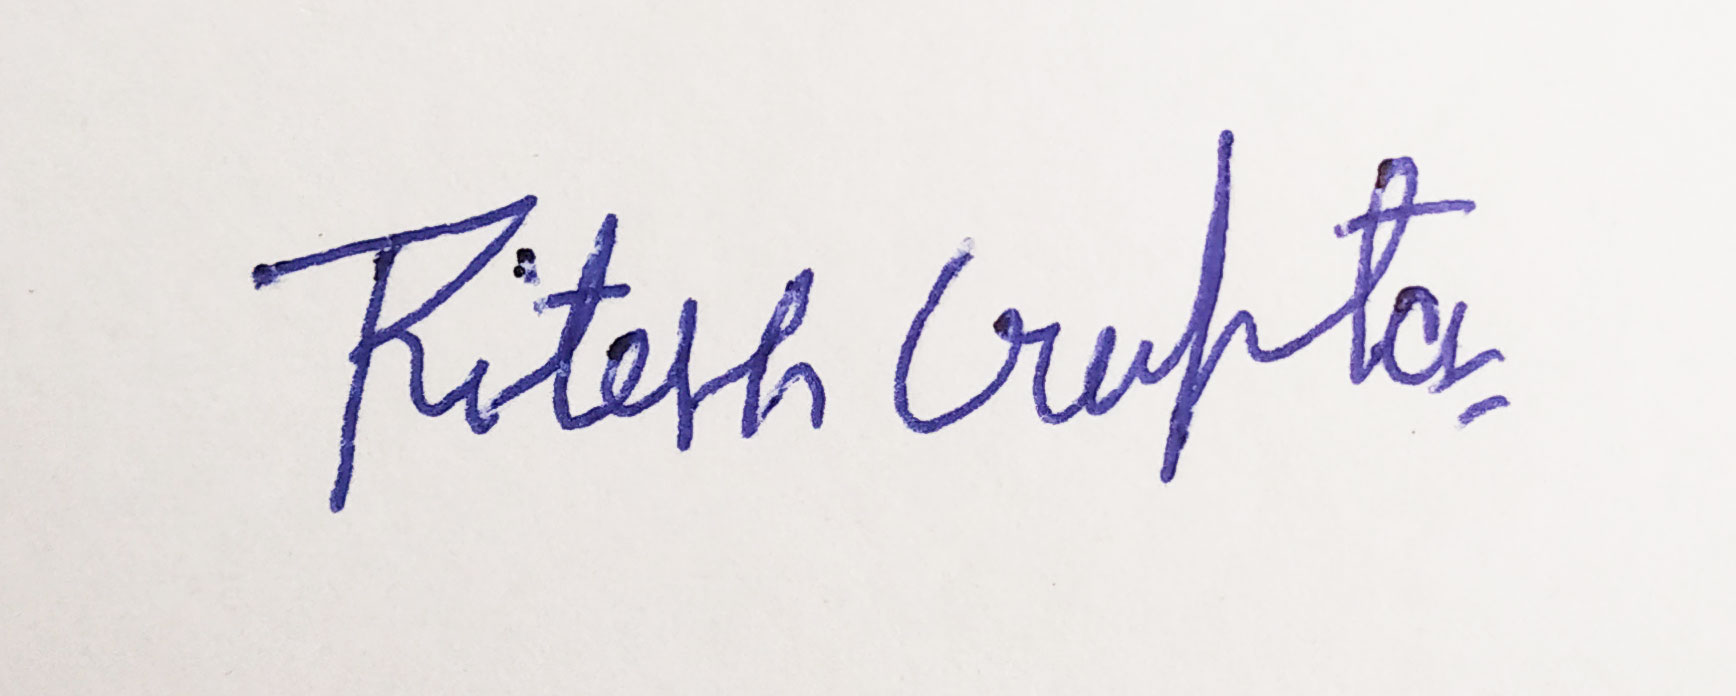 Ritesh Gupta